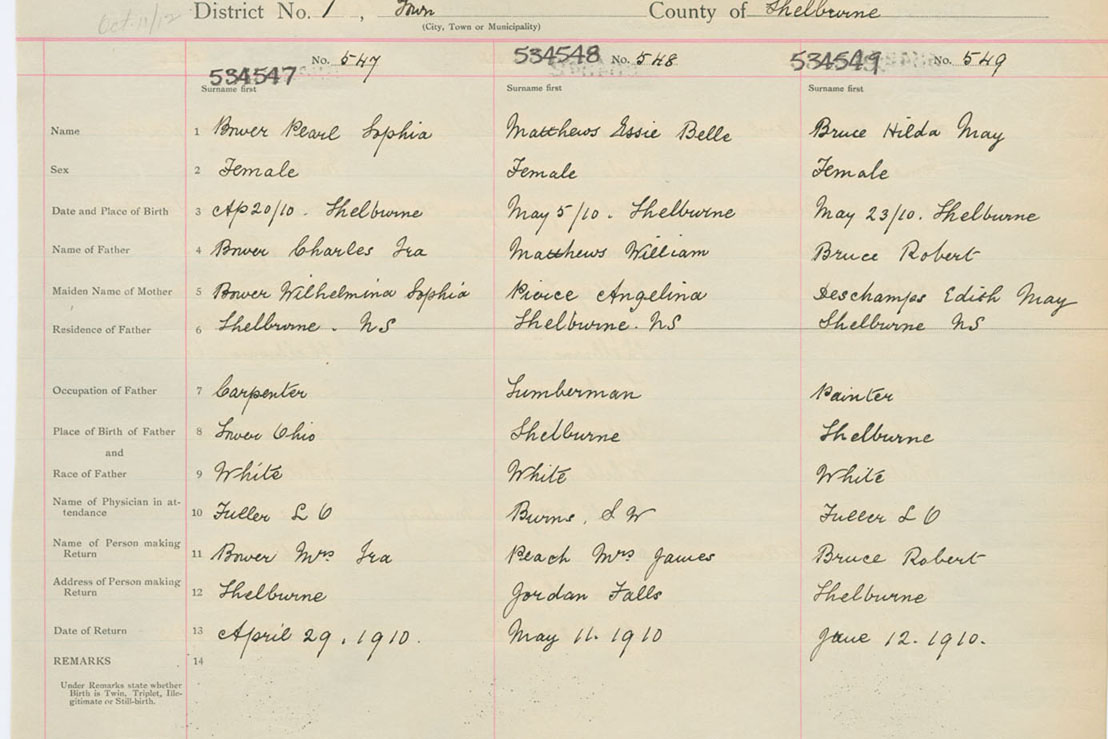 Oct. 11/12
District No. 1, Town County of Shelburne
(City, Town or Municipality)
No. 547 534548 No. 548 534549 No. 549
534547
Surname first Surname first Surname first
Name 1 Bower Pearl Sophia Matthews Essie Belle Bruce Hilda May
Sex 2 Female Female Female
Date and Place of Birth 3 Ap 20/10 - Shelburne May 5/10. Shelburne May 23/10. Shelburne
Name of Father 4 Bower Charles Ira Matthews William Bruce Robert
Maiden Name of Mother 5 Bower Wilhelmina Sophia Pierce Angelina Deschamps Edith May
Residence of Father 6 Shelburne - NS Shelburne. NS Shelburne NS
Occupation of Father 7 Carpenter Lumberman Painter
Place of Birth of Father 8 Lower Ohio Shelburne Shelburne
and
Race of Father 9 White White White
Name of Physician in at-
tendance 10 Fuller L O Burns, S W Fuller L O
Name of Person making
Return 11 Bower Mrs Ira Peach Mrs James Bruce Robert
Address of Person making
Return 12 Shelburne Jordan Falls Shelburne
Date of Return 13 April 29, 1910. May 11. 1910 June 12. 1910.
REMARKS 14
Under Remarks state whether
Birth is Twin, Triplet, Ille-
gitimate or Still-birth.